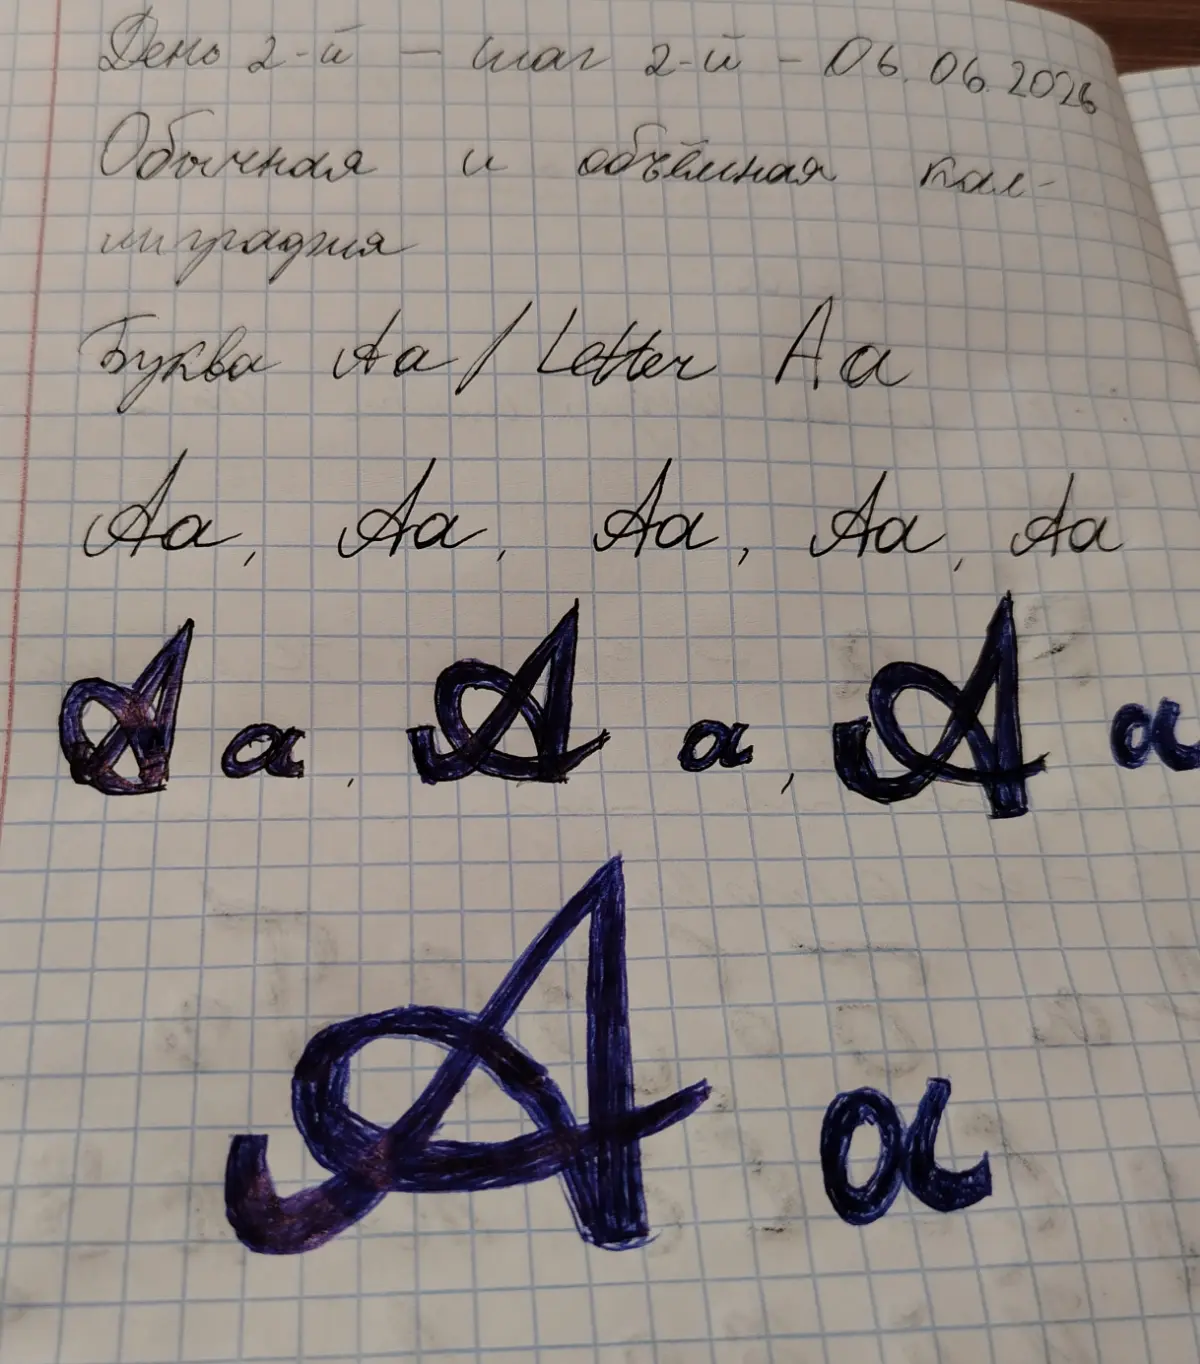 День 2-й — шаг 2-й - 06.06.2026
Обычная и объёмная кал-
лиграфия
Буква Аа / Letter Aa
Аа, Аа, Аа, Аа, Аа
А а, А а, А а
А а